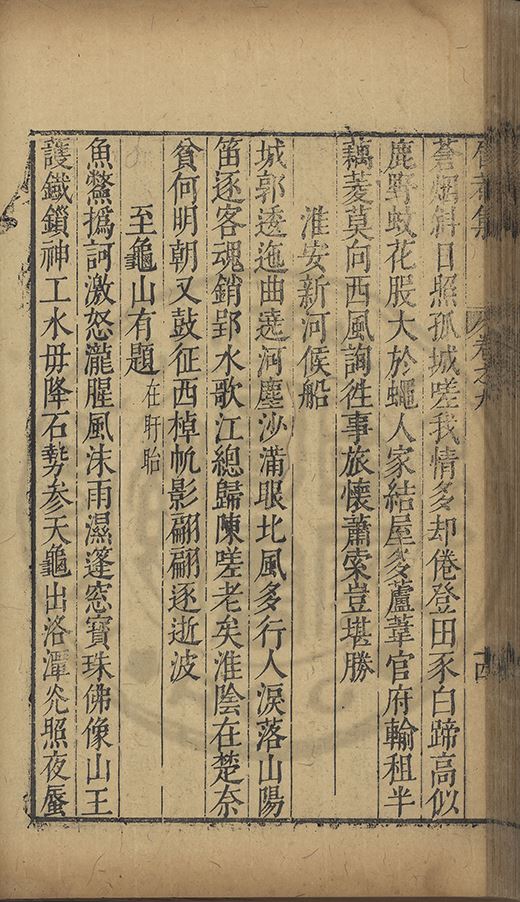 卷之九
四
蒼烟斜日照孤城嗟我情多却倦登田豕白蹄高似
鹿野蚊花股大於蠅人家結屋多蘆葦官府輸租半
藕菱莫向西風詢徃事旅懷蕭索豈堪勝
淮安新河候船
城郭透迤曲遶河塵沙滿眼北風多行人淚落山陽
笛逐客魂銷郢水歌江總歸陳嗟老矣淮陰在楚奈
貧何明朝又鼓征西棹帆影翩翩逐逝波
至龜山有題在盱眙
魚鱉撝訶激怒瀧腥風沬雨濕蓬窓寶珠佛像山王
護鐵鎖神工水毋降石勢參天龜出洛潭光照夜蜃